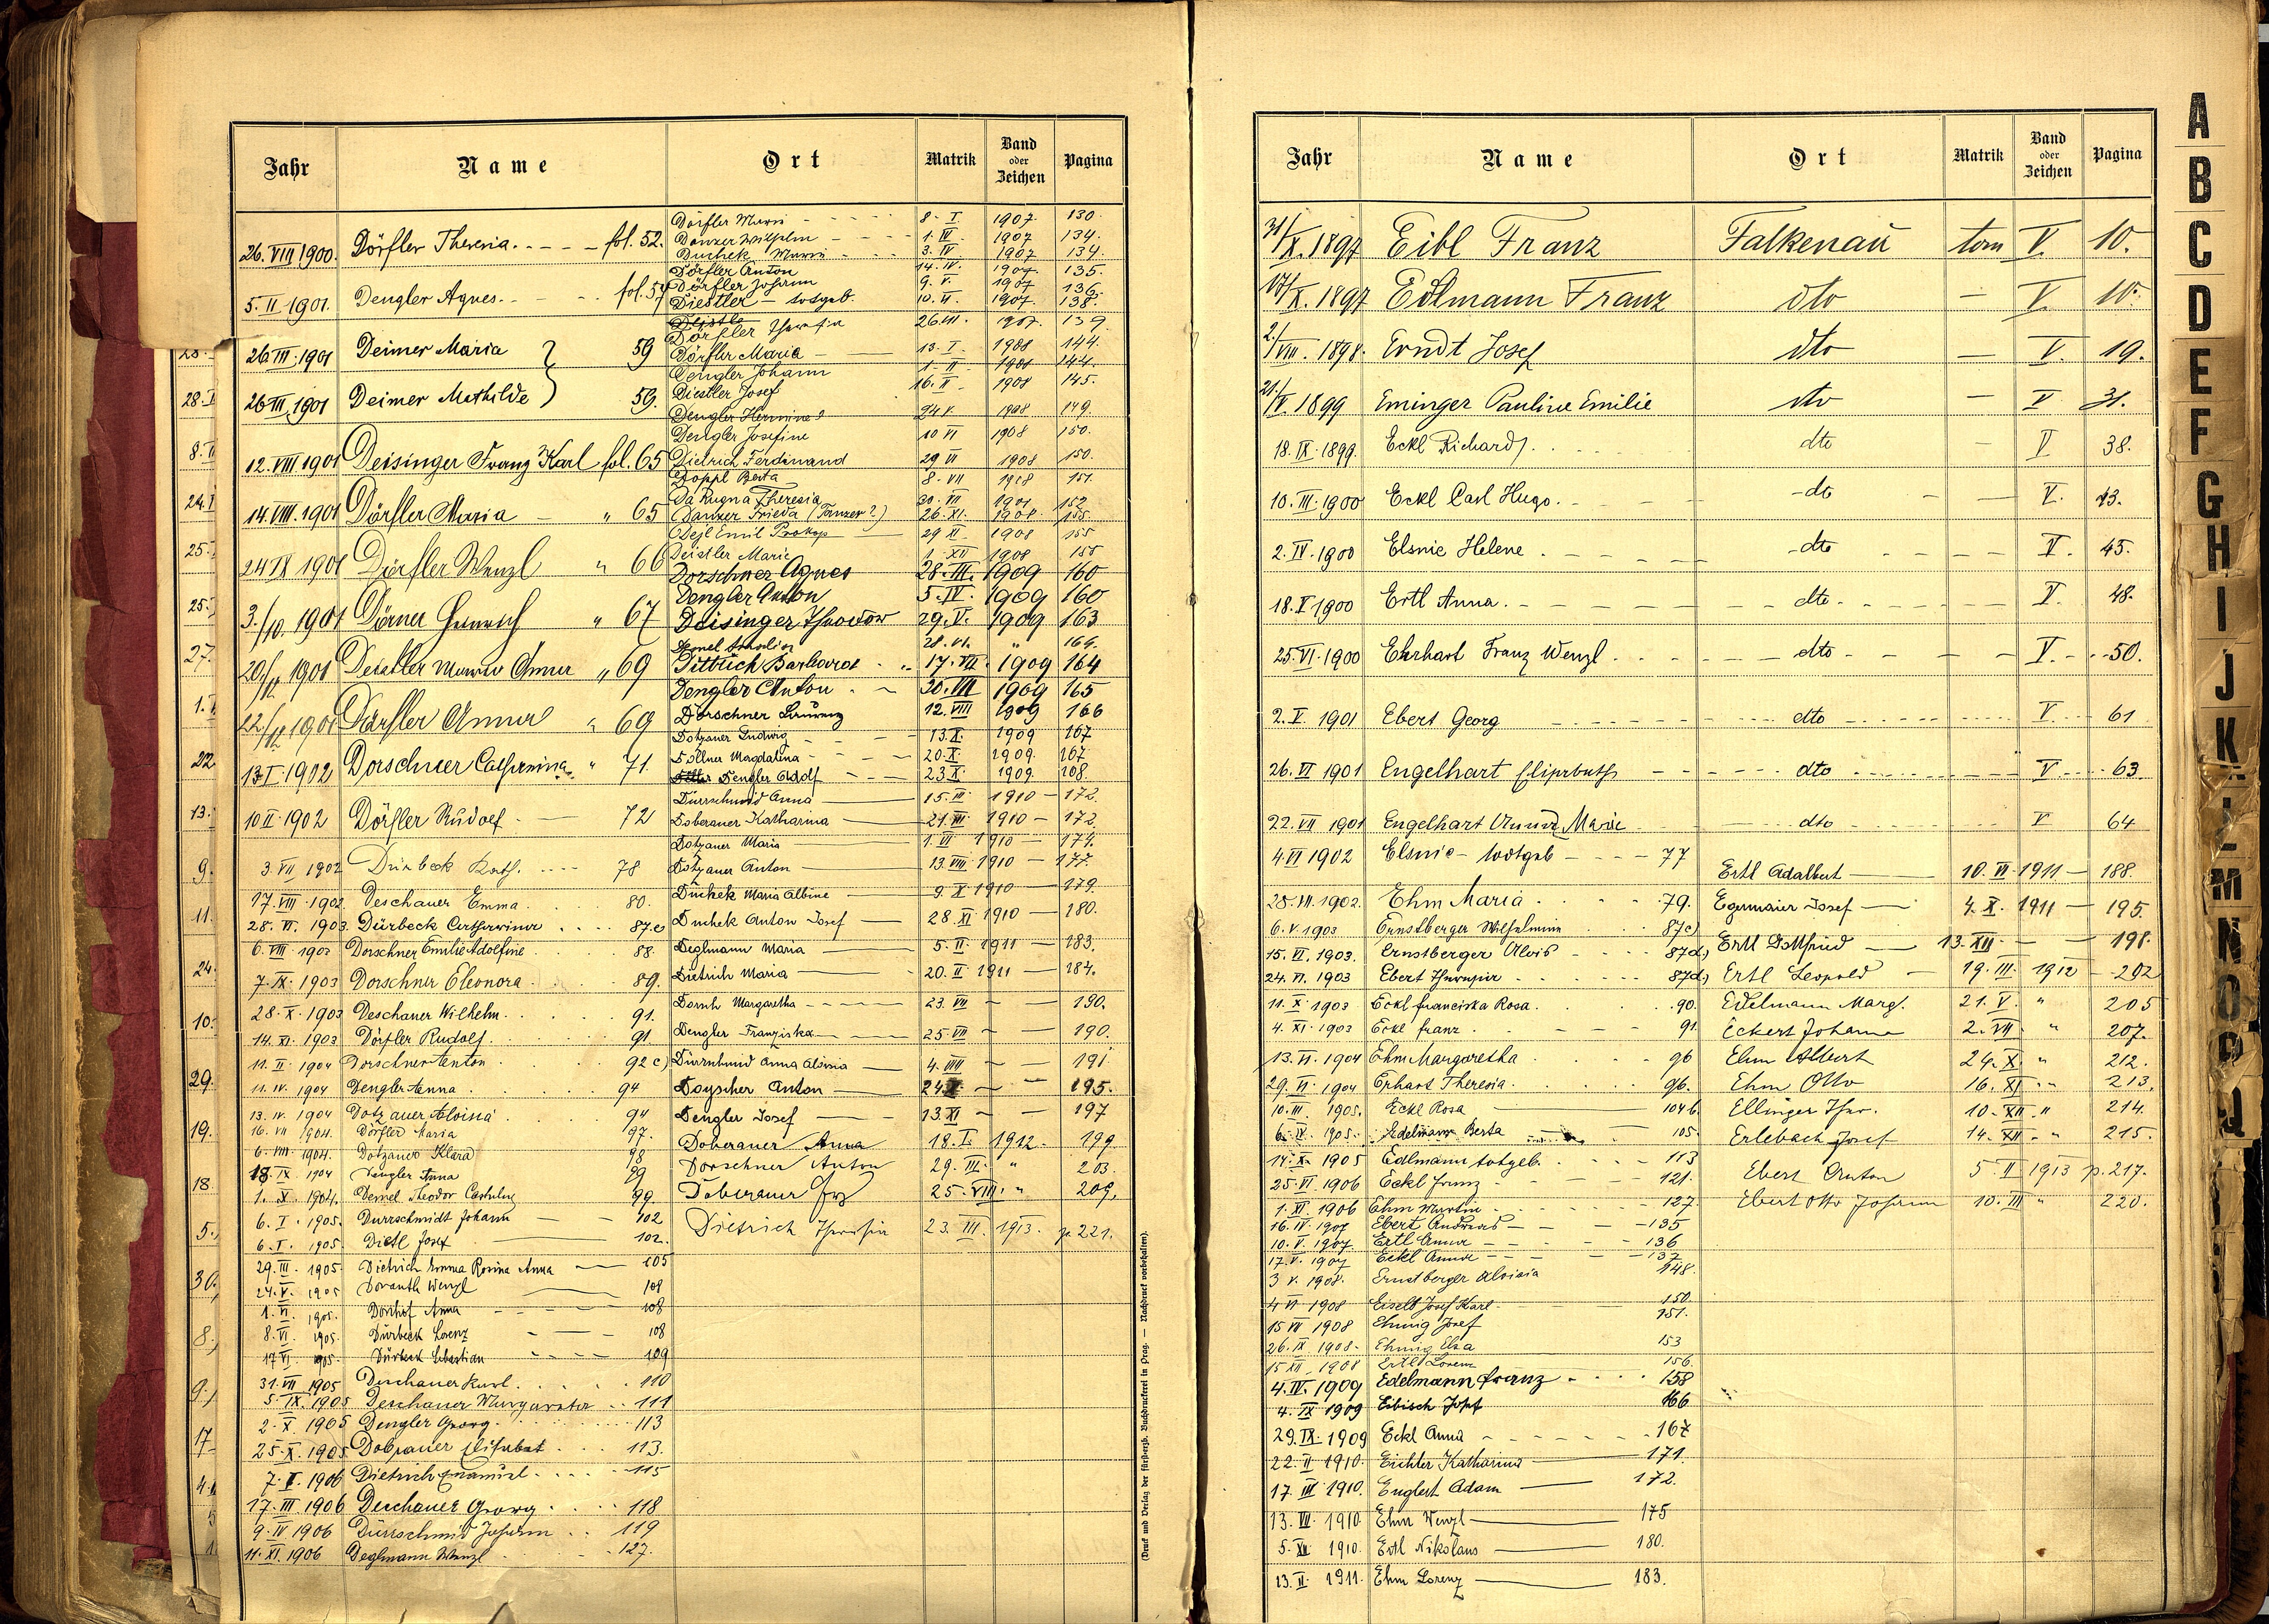 Jahr Name Ort Matrik Band oder Zeichen Pagina
26. VIII 1900. Dörfler Theresia. fol. 52.
5. II. 1901. Dengler Agnes. fol. 57
26. III. 1901 Deimer Maria 59
26. III. 1901 Deimer Mathilde 59.
12. VIII 1901 Deisinger Franz Karl fol. 65
14. VIII. 1901 Dörfler Maria " 65
24 IX 1901 Dörfler Wenzl " 66
3./10. 1901 Dörner Heinrich " 67
20./12. 1901 Deistler Maria Anna " 69
22/12 1901 Dörfler Anna " 69
13. I. 1902 Dorschner Catharina " 71.
10 II. 1902 Dörfler Rudolf. 72
3. VII 1902 Dürbeck Kath. 78
17. VIII. 1902. Deschauer Emma 80.
28. VI. 1903. Dürbeck Catharina 87.c
6. VIII. 1903 Dorschner Emilie Adolfine 88.
7. IX. 1903 Dorschner Eleonora 89.
28. X. 1903 Deschauer Wilhelm. 91.
14. XI. 1903 Dörfler Rudolf. 91
11. II. 1904 Dorschner Anton 92 c)
11. IV. 1904 Dengler Anna 94
13. IV. 1904 Dotzauer Aloisia 94
16. VII 1904. Dörfler Maria 97.
6. VIII. 1904. Dotzauer Klara 98
18. IX. 1904 Dengler Anna 99
1. X. 1904. Demel Theodor 99.
6. I. 1905. Durrschmidt Johann 102
6. I. 1905. Dietl Josef 102.
29. III. 1905. Dietrich Emma Rosina Anna 105
24. V. 1905 Doranth Wenzl 108
1. VI. 1905. Dorschof Anna 108
8. VI. 1905. Dürbeck Lorenz 108
17 VI. 1905. Dürbeck Sebastian 109
31. VII 1905 Deschauer Karl. 110
5. IX. 1905 Deschauer Margareta 111
2. X. 1905 Dengler Georg. 113
25. X. 1905 Dobrauer Elisabet 113.
7. II. 1906 Dietrich Emanuel. 115
17. III 1906 Deschauer Georg 118
9. IV 1906 Dürrschmid Johann 119
11. XI. 1906 Deglmann Wenzl 127.
Dörfler Maria 8. I. 1907. 130.
Danzer Wilhelm 1. IV. 1907 134.
Duchek Maria 3. IV 1907 134.
Dörfler Anton 14. IV. 1907. 135.
Dörfler Johann 9. V. 1907 136
Diestler – todgeb. 10. VI. 1907. 138.
Deistle
Dörfler Theresia 26. VII. 1907. 139
Dörfler Maria 13. I. 1908 144.
Dengler Johann 1. II 1908 144.
Diestler Josef 16. II 1908 145.
Dengler Hermine 24 V. 1908 149.
Dengler Josefine 10 VI 1908 150.
Dietrich Ferdinand 29 VI 1908 150.
Doppl Berta 8. VII 1908 151.
Da Rugna Theresia 30. VII 1908 152
Danzer Frieda (Tanzer?) 26. XI. 1908. 155.
Dejl Emil Prokop 29 XI 1908 155
Deistler Marie 1. XII 1908 155
Dorschner Agnes 28. III. 1909 160
Dengler Anton 5. IV. 1909 160
Deisinger Theodor 29. V. 1909 163
28. VI. " 164.
Dittrich Barbara 17. VII. 1909 164
Dengler Anton 30. VII 1909 165
Dorschner 12. VIII 1909 166
Dotzauer Ludwig 13. X. 1909 167
Döllner Magdalena 20. X. 1909. 167
Dengler Adolf 23 X. 1909. 168.
Dürrschmid Anna 15. III 1910 172.
Doberauer Katharina 21. III 1910 172
Dotzauer Maria 1. VI 1910 174.
Dotzauer Anton 13. VIII 1910 177.
Duchek Maria Albine 9. X 1910 179.
Duchek Anton Josef 28. XI 1910 180.
Deglmann Maria 5. II. 1911 183.
Dietrich Maria 20. II 1911 184.
Dorsch Margaretha 23. VII 190.
Dengler Franziska 25. VII 190.
Dürrschmid Anna Aloisia 4. VIII 191
Doyscher Anton 24 X 195.
Dengler Josef 13 XI 197
Doberauer Anna 18. I. 1912. 199
Dorschner Anton 29. III. " 203.
Doberauer Frz 25. VIII. " 209.
Dietrich Theresia 23. III. 1913. p. 221.
(Druck und Verlag der fürsterzb. Buchdruckerei in Prag. — Nachdruck vorbehalten).
Jahr Name Ort Matrik Band oder Zeichen Pagina
31/X. 1897 Eibl Franz Falkenau tom V. 10.
17/X. 1897 Edlmann Franz dto V. 10.
2./VIII. 1898. Erndt Josef dto V. 19.
21./V. 1899 Eminger Pauline Emilie dto V 31.
18. IX. 1899. Eckl Richard. dto V 38.
10. III. 1900 Eckl Carl Hugo. dto V. 43.
2. IV. 1900 Elsnic Helene. dto V. 45.
18. V 1900 Ertl Anna. dto V. 48.
25. VI. 1900 Ehrhart Franz Wenzl dto V. 50.
2. V. 1901 Ebert Georg dto V. 61
26. VI 1901 Engelhart Elisabeth dto V 63
22. VII 1901 Engelhart Anna Marie dto V 64
4. VI 1902 Elsnic – todtgeb 77
28. VII. 1902. Ehm Maria 79.
6. V. 1903 Ernstberger Wilhelmine 87c)
15. VI. 1903. Ernstberger Alois 87d)
24. VI. 1903 Ebert Theresia 87d)
11. X. 1903 Eckl Franciska Rosa. 90.
4. XI. 1903 Eckl Franz. 91
13. VI. 1904 Ehm Margaretha 96
29. VI. 1904 Erhart Theresia. 96.
10. III. 1905. Eckl Rosa 104 b.
6. IV. 1905. Edelmann Berta 105.
14. X. 1905 Edlmann totgeb. 113
25. VI 1906 Eckl Franz 121.
1. XI. 1906 Ehm Martin 127.
16. IV. 1907 Ebert Andreas 135
10. V. 1907. Ertl Anna 136
17. V. 1907 Eckl Anna 137
3 V. 1908. Ernstberger Aloisia 148.
4 VI 1908 Eiselt Josef Karl 150.
15 VII 1908 Ehmig Josef 151.
26. IX 1908. Ehmig Elsa 153
15 XII 1908 Ertl Lorenz 156.
4. IV. 1909 Edelmann Franz 158
4. IX 1909 Eibisch Josef 166
29. IX. 1909 Eckl Anna 167
22. II 1910. Eichler Katharina 171.
17 III 1910. Englert Adam 172.
13. VI. 1910 Ehm Wenzl 175
5. XII 1910. Ertl Nikolaus 180.
13. II. 1911. Ehm Lorenz 183.
Ertl Adalbert 10. VI 1911 188.
Egermaier Josef 4. X. 1911 195.
Ertl Gottfried 13. XII. 198.
Ertl Leopold 19. III. 1912 202
Edelmann Marg. 21. V. " 205
Eckert Johann 2. VII " 207.
Ehm Albert 24. X. " 212.
Ehm Otto 16. XI. " 213.
Ellinger Ther. 10. XII. " 214.
Erlebach Josef 14. XII. " 215.
Ebert Anton 5. II. 1913 p. 217.
Ebert Otto Johann 10. III " 220.
A
B
C
D
E
F
G
H
I
J
K
M
N
O